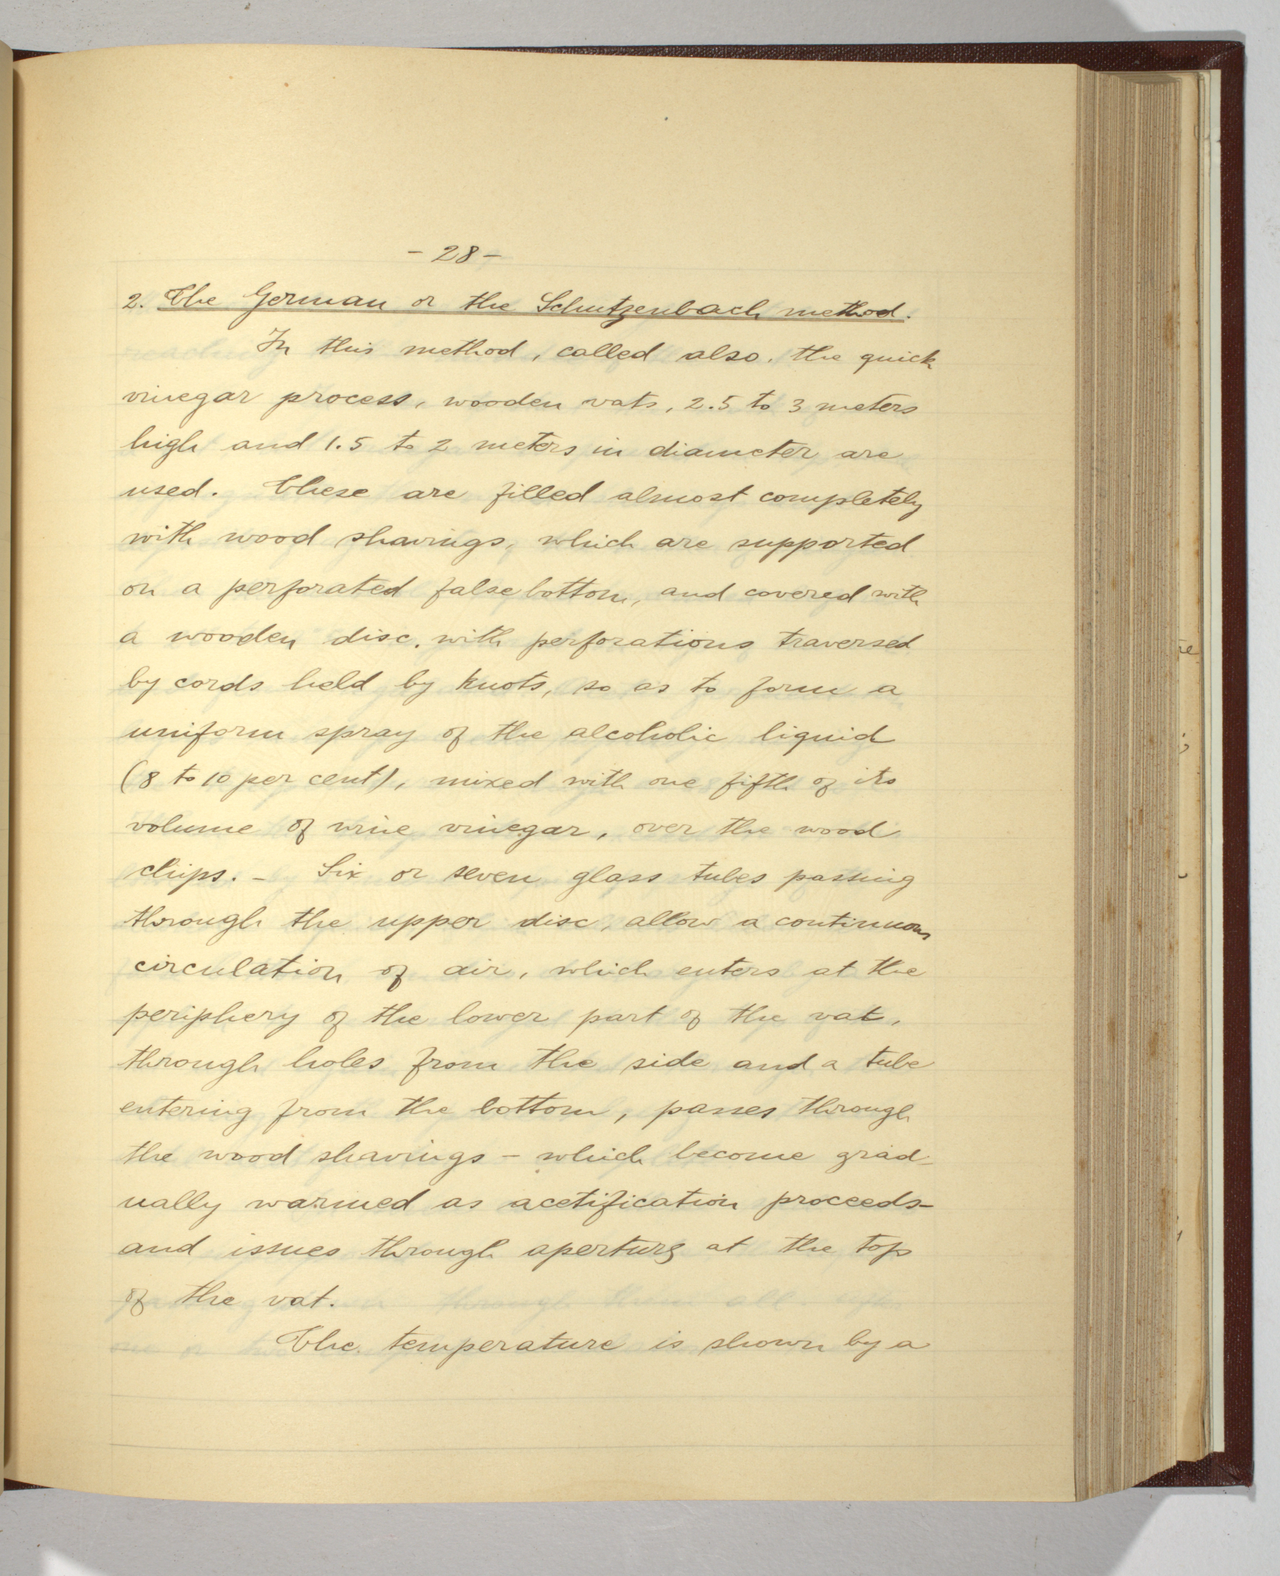 - 28 -
2. The German or the Schutzenbach method.
In this method, called also, the quick
vinegar process, wooden vats, 2.5 to 3 meters
high and 1.5 to 2 meters in diameter are
used. These are filled almost completely
with wood shavings, which are supported
on a perforated false bottom, and covered with
a wooden disc, with perforations traversed
by cords held by knots, so as to form a
uniform spray of the alcoholic liquid
(8 to 10 per cent), mixed with one fifth of its
volume of wine vinegar, over the wood
chips. - Six or seven glass tubes passing
through the upper disc, allow a continuous
circulation of air, which enters at the
periphery of the lower part of the vat,
through holes from the side and a tube
entering from the bottom, passes through
the wood shavings - which become grad-
ually warmed as acetification proceeds-
and issues through aperturs at the top
of the vat.
The temperature is shown by a